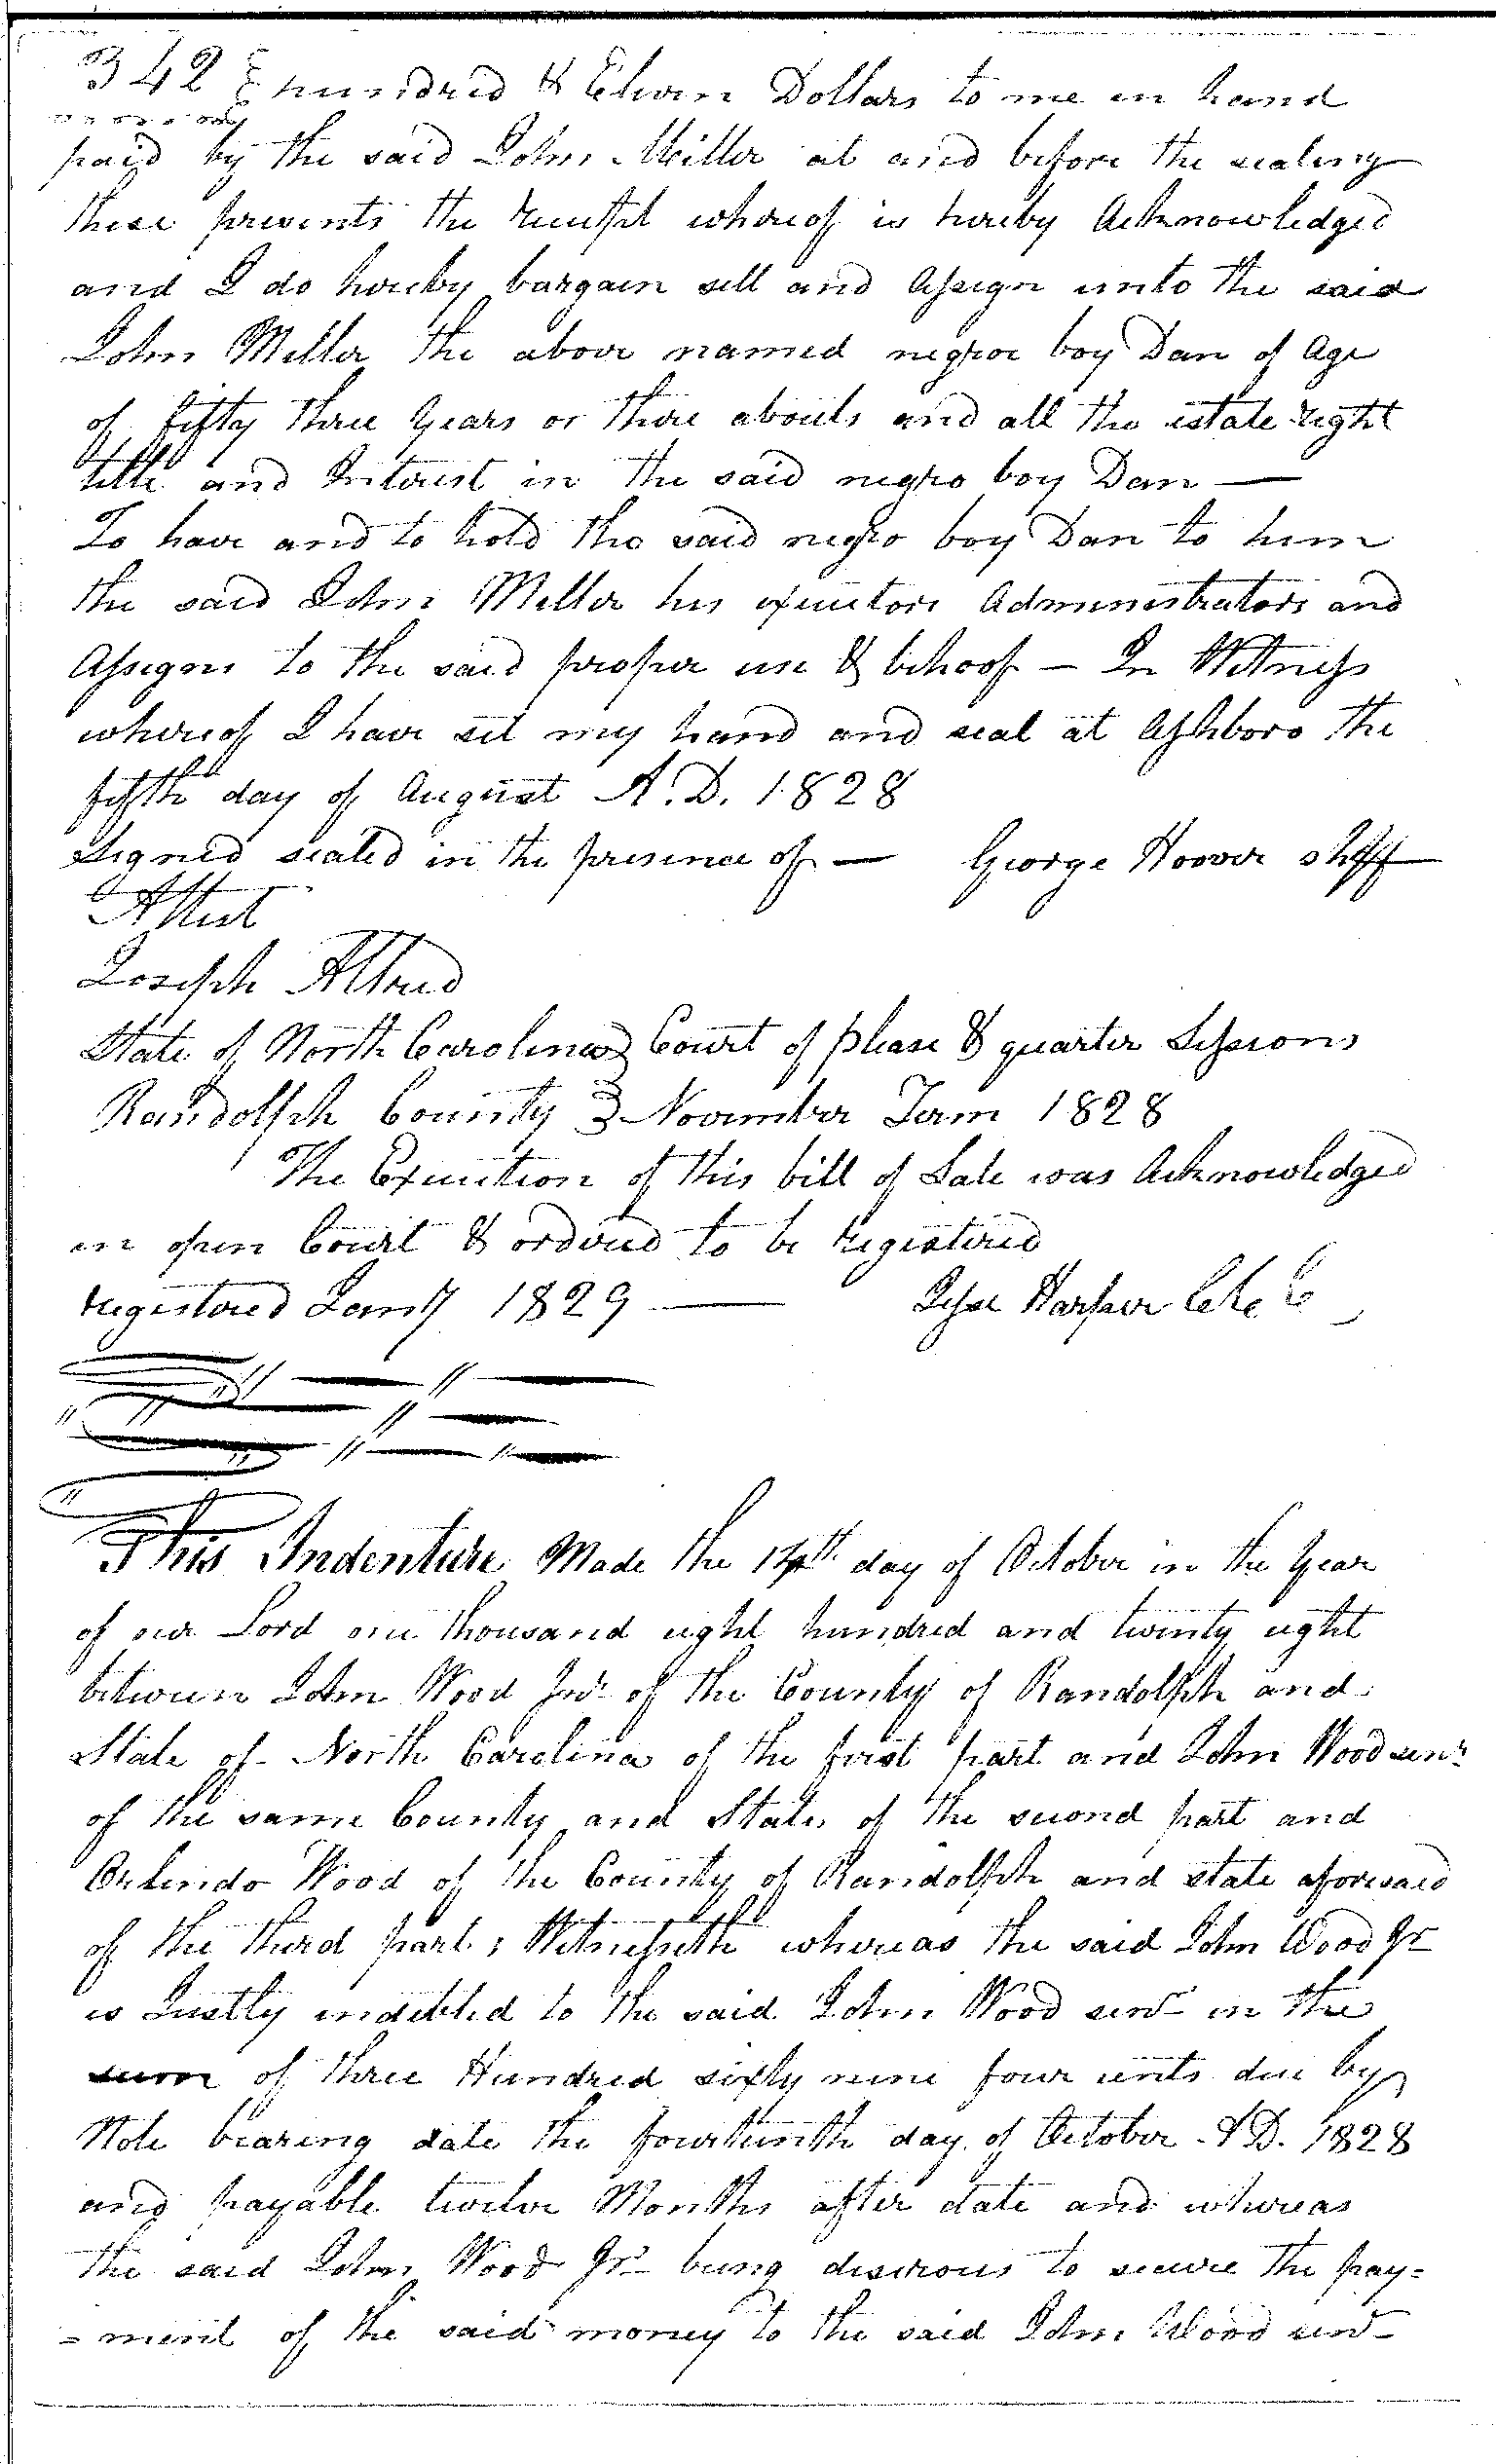 342 hundred & Eleven Dollars to me in hand
paid by the said John Miller at and before the sealing
these presents the receipt whereof is hereby Acknowledged
and I do hereby bargain sell and Assign unto the said
John Miller the above named negroe boy Dan of Age
of fifty three years or there abouts and all the estate right
title and Interest in the said negro boy Dan —
To have and to hold the said negro boy Dan to him
the said John Miller his executors Administrators and
Assigns to the said proper use & behoof — In Witness
whereof I have set my hand and seal at Ashboro the
fifth day of August A.D. 1828
Signed sealed in the presence of — George Hoover shff
Attest
Joseph Allred
State of North Carolina } Court of please & quarter Sessions
Randolph County } November Term 1828
The Execution of this bill of Sale was Acknowledged
in open Court & ordered to be registered
registered Jany 1829 — Jesse Harper Clk C
This Indenture Made the 14th day of October in the year
of our Lord one thousand eight hundred and twenty eight
between John Wood Jnr of the County of Randolph and
State of North Carolina of the first part and John Wood senr
of the same County and State of the second part and
Orlendo Wood of the County of Randolph and state aforesaid
of the third part; Witnesseth whereas the said John Wood Jr
is Justly indebted to the said John Wood senr in the
sum of three Hundred sixty nine four cents due by
Note bearing date the fourteenth day of October AD. 1828
and payable twelve Months after date and whereas
the said John Wood Jr being desirous to secure the pay=
=ment of the said money to the said John Wood senr